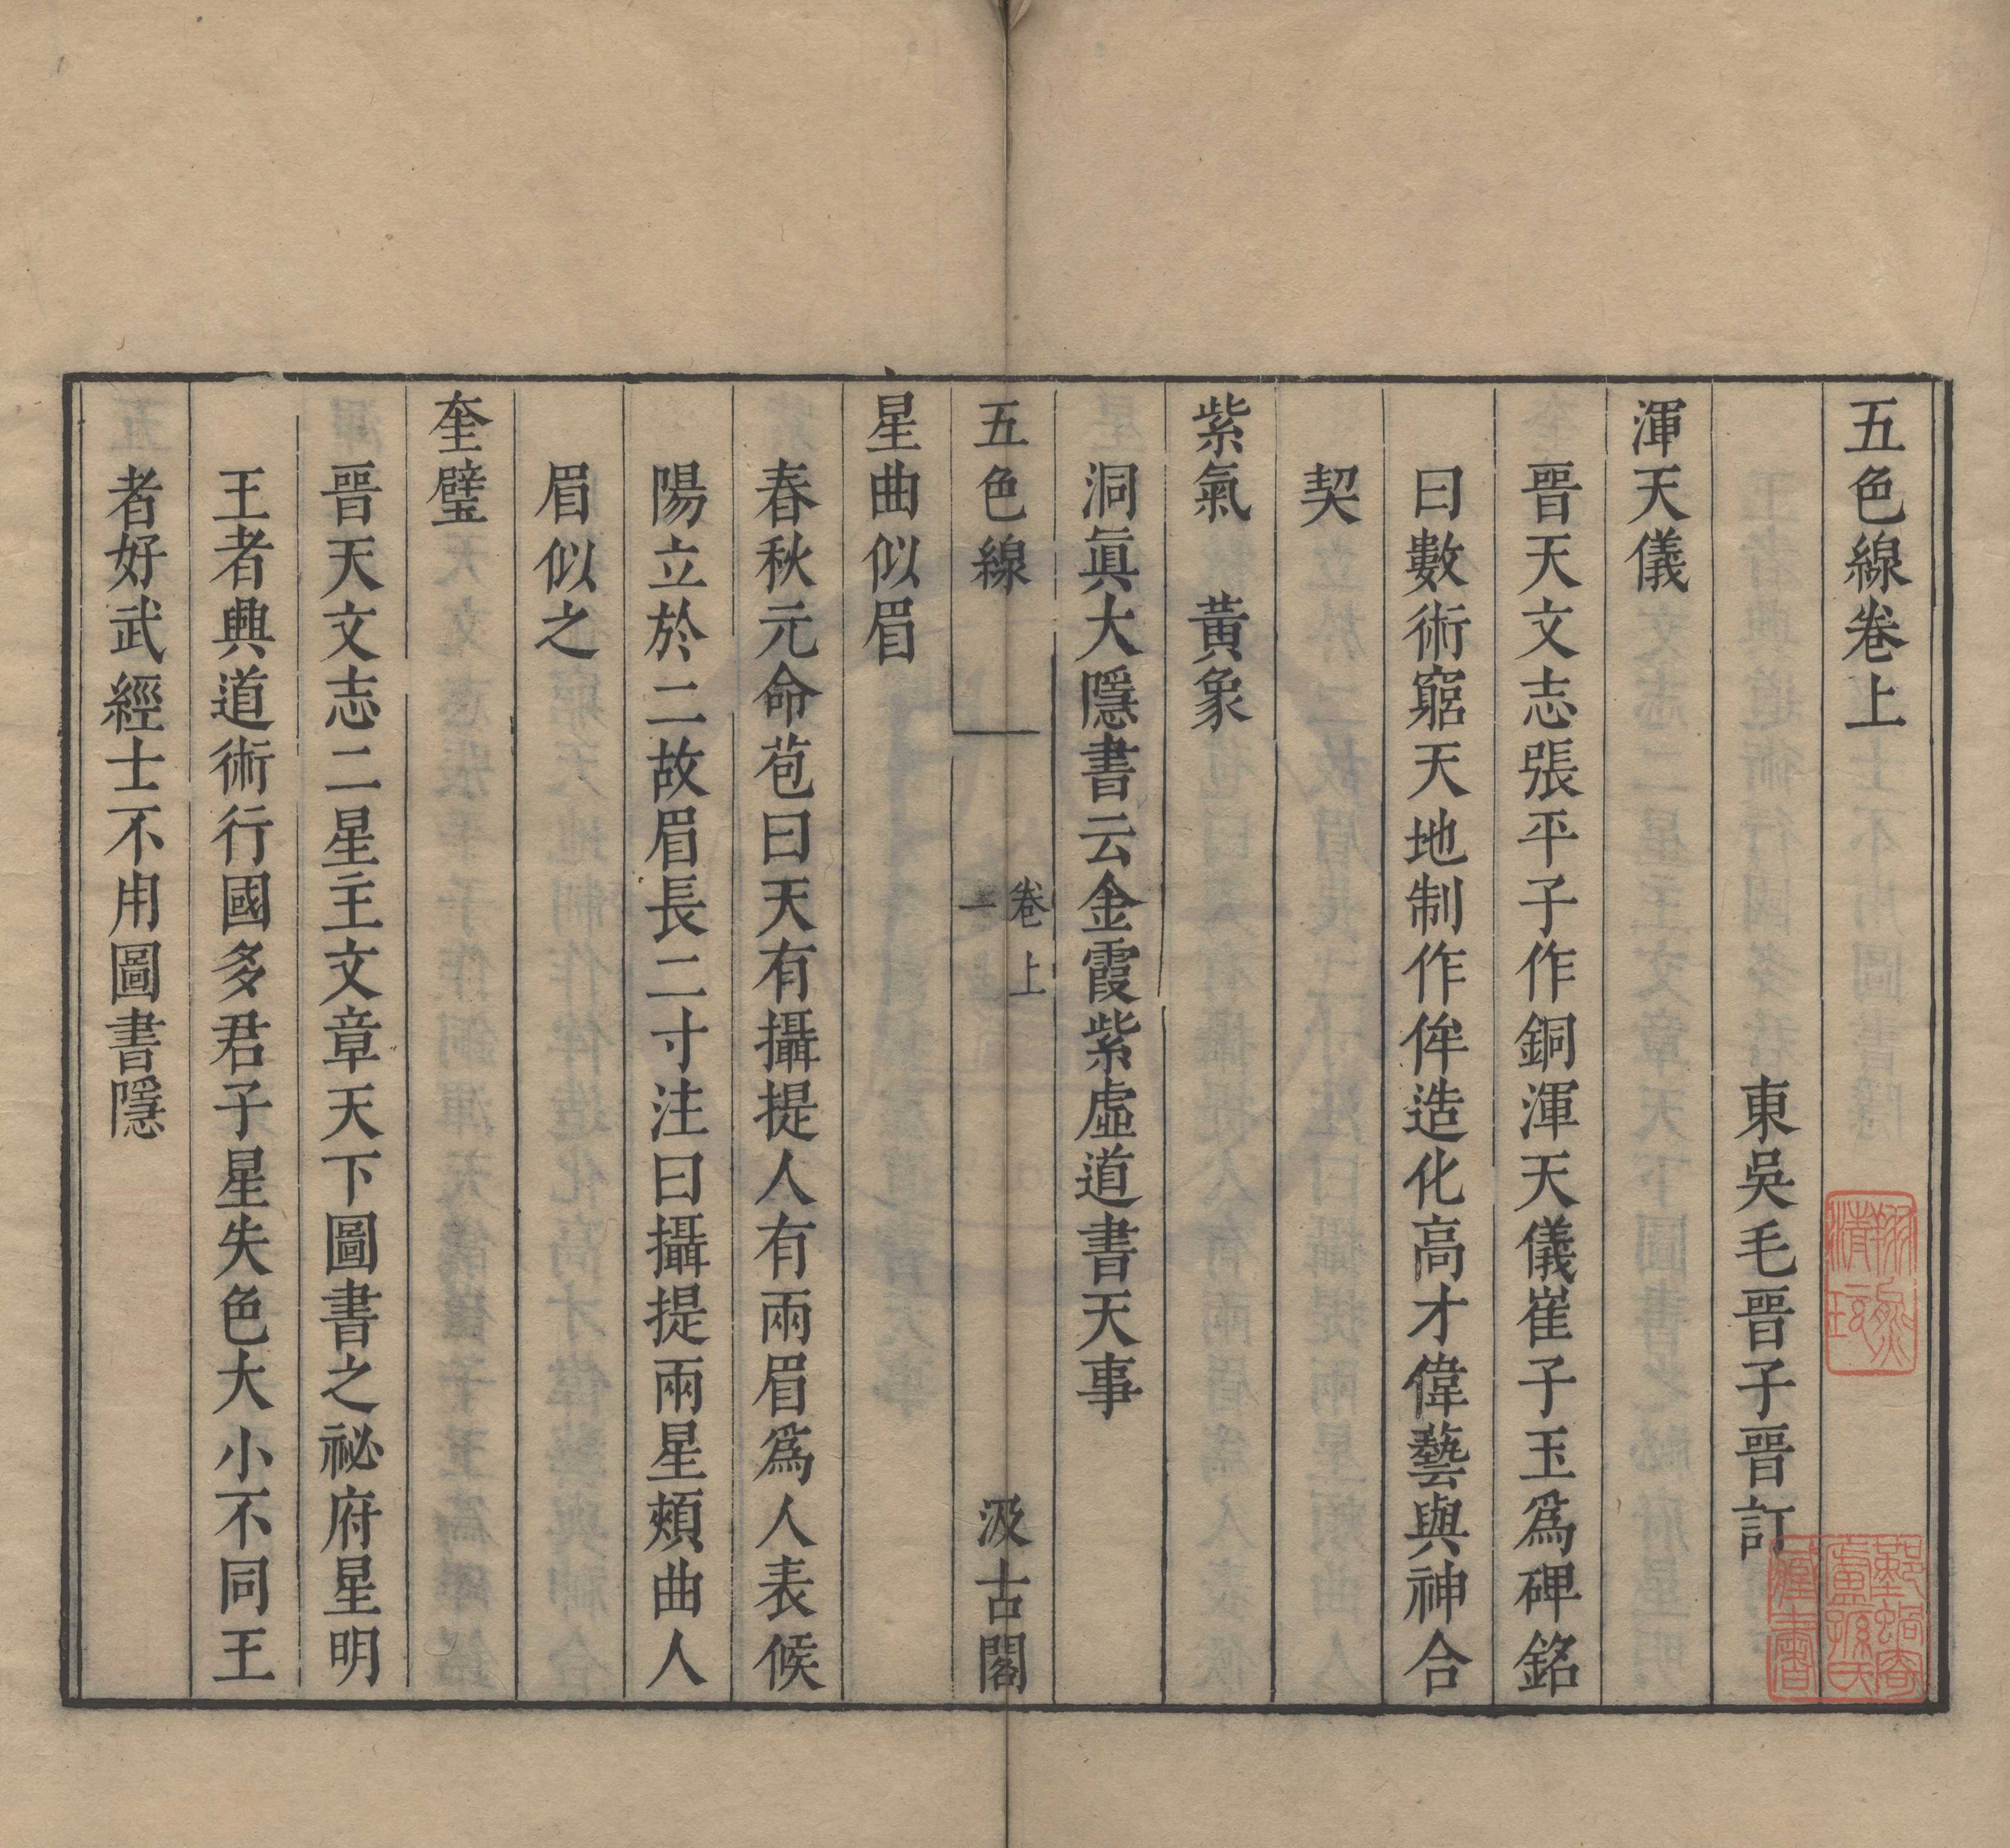 五色線卷上
東吳毛晉子晉訂
渾天儀
晉天文志張平子作銅渾天儀崔子玉爲碑銘
曰數術窮天地制作侔造化高才偉藝與神合
契
紫氣　黃象
洞眞大隱書云金霞紫虛道書天事
五色線　卷上　一　汲古閣
星曲似眉
春秋元命苞曰天有攝提人有兩眉爲人表候
陽立於二故眉長二寸注曰攝提兩星頰曲人
眉似之
奎璧
晉天文志二星主文章天下圖書之祕府星明
王者興道術行國多君子星失色大小不同王
者好武經士不用圖書隱